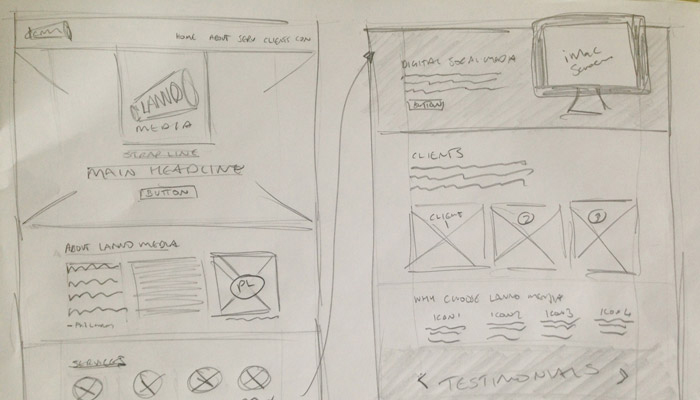 HOME ABOUT SERV CLIENTS CON
LANNO
MEDIA
STRAP LINE
MAIN HEADLINE
BUTTON
ABOUT LANNO MEDIA
PL
SERVICES
DIGITAL SOCIAL MEDIA
BUTTON
iMac
Screen
CLIENTS
CLIENT
1
2
3
WHY CHOOSE LANNO MEDIA
ICON1 ICON2 ICON3 ICON4
< TESTIMONIALS >